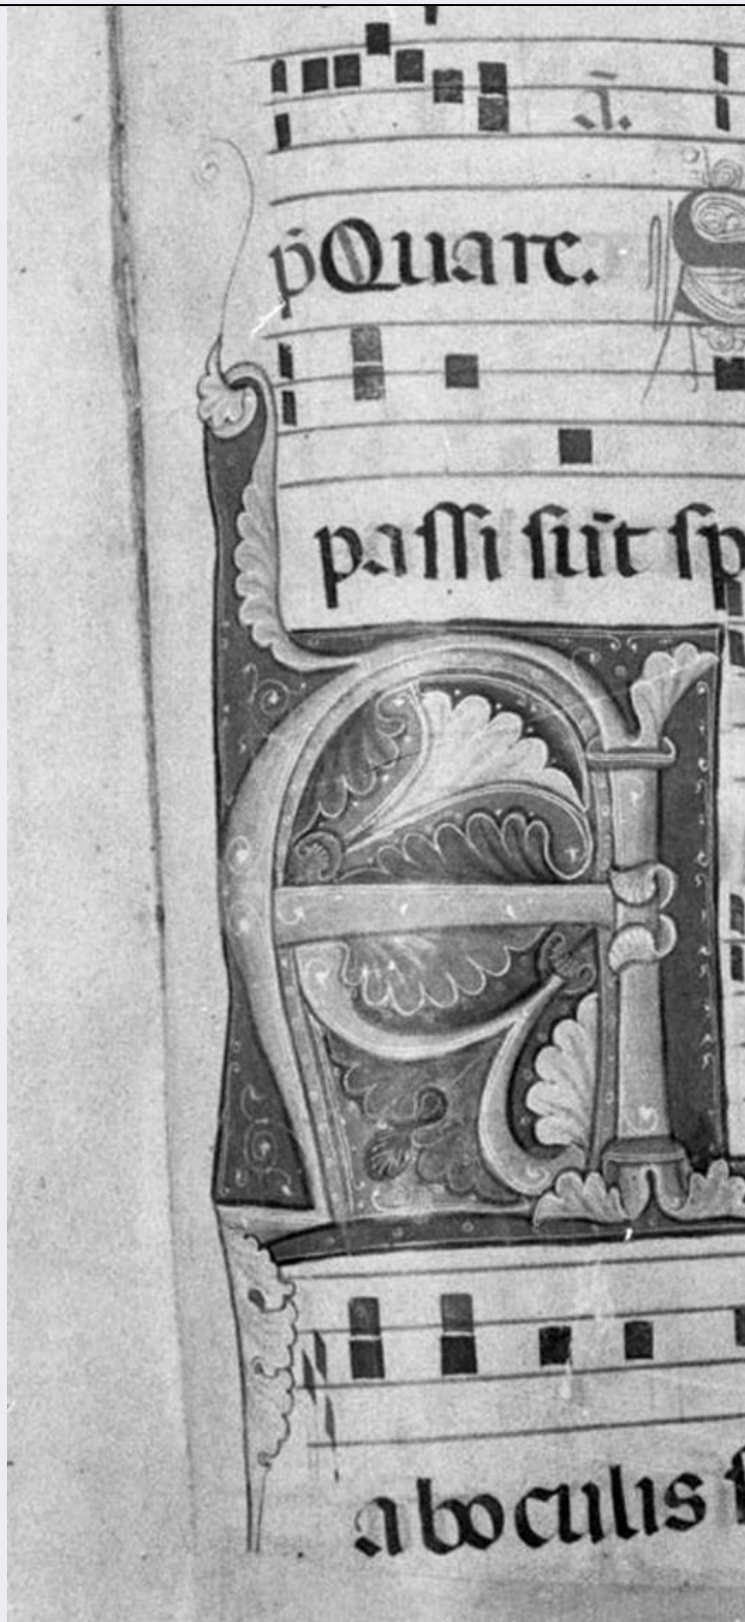 a.
p̄ Quare. S
passi sūt sp
A
ab oculis s